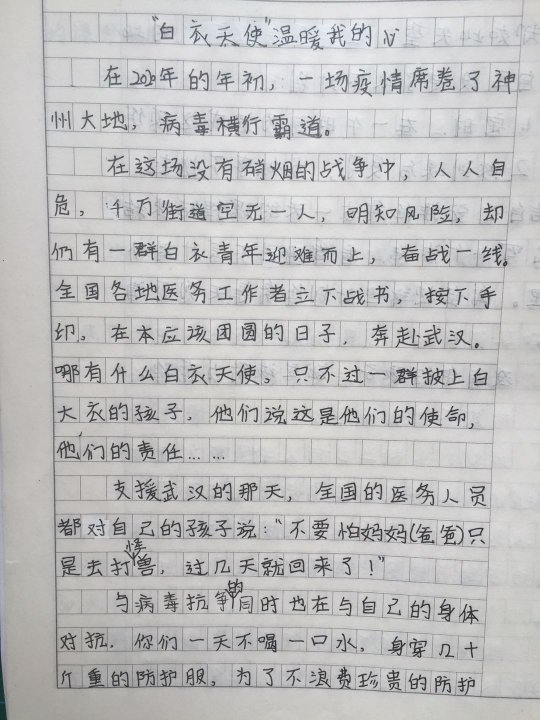 “白衣天使”温暖我的心
在2020年的年初，一场疫情席卷了神
州大地，病毒横行霸道。
在这场没有硝烟的战争中，人人自
危，千万街道空无一人，明知风险，却
仍有一群白衣青年迎难而上，奋战一线。
全国各地医务工作者立下战书，按下手
印。在本应该团圆的日子，奔赴武汉。
哪有什么白衣天使。只不过一群披上白
大衣的孩子，他们说这是他们的使命，
他们的责任……
支援武汉的那天，全国的医务人员
都对自己的孩子说：“不要怕妈妈(爸爸)只
是去打怪兽，过几天就回来了！”
与病毒抗争的同时也在与自己的身体
对抗。你们一天不喝一口水，身穿几十
斤重的防护服，为了不浪费珍贵的防护